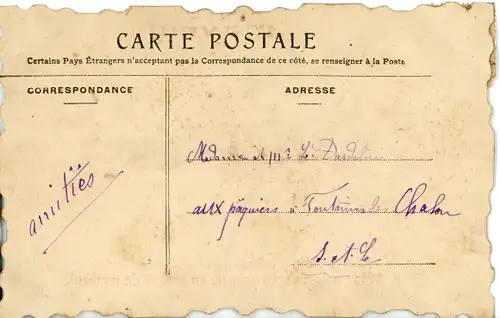 CARTE POSTALE
Certains Pays Étrangers n'acceptant pas la Correspondance de ce côté, se renseigner à la Poste
CORRESPONDANCE
ADRESSE
amitiés
Madame et Mr
aux pâquiers à Fontaines les Chalon
S. et L